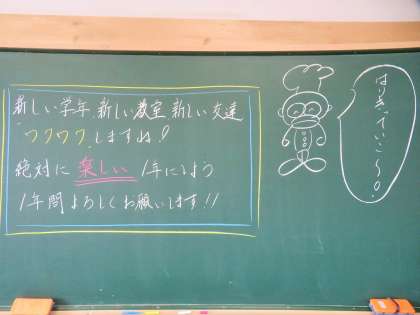 新しい学年、新しい教室 新しい友達
"ワクワク"しますね！
絶対に 楽しい 1年にしよう
1年間よろしくお願いします！！
はりきっていこ〜！